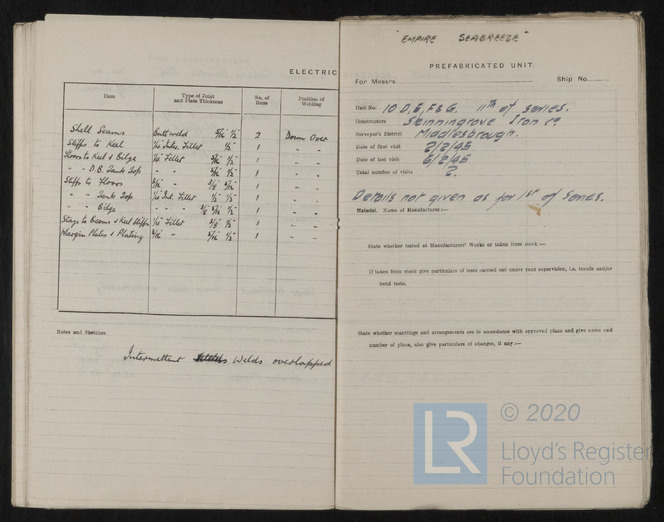 ELECTRIC
Item Type of Joint and Plate Thickness No. of Runs Position of Welding
Shell Seams Butt weld 5/16 1/2 2 Down Over
Stiffs to Keel 1/10" Fillet 1/2 1 " "
Floors to Keel & Bilge 1/10" Fillet 1/2 1 " "
" " D.B. Tank Top " " 1/2 1 " "
Stiffs to Floors " 1 " "
" " Tank Top Fillet 1 " "
" " Bilge " " 1/2 1 " "
Stays to Beams & Keel Stiffs Fillet 1/2 1 " "
Margin Plates & Plating " 1/2 1 " "
Notes and Sketches
Intermittent Welds overlapped
"EMPIRE SEABREEZE"
PREFABRICATED UNIT.
For Messrs. Ship No.
Unit No. 10 D, E, F & G. 11th of series.
Constructors Skinningrove Iron Co
Surveyor's District Middlesbrough.
Date of first visit 2/2/45
Date of last visit 6/2/45
Total number of visits 2.
Details not given as for 1st of series.
Material. Name of Manufacturer :—
State whether tested at Manufacturers' Works or taken from stock :—
If taken from stock give particulars of tests carried out under your supervision, i.e. tensile and/or
bend tests.
State whether scantlings and arrangements are in accordance with approved plans and give name and
number of plans, also give particulars of changes, if any :—
LR © 2020
Lloyd's Register
Foundation